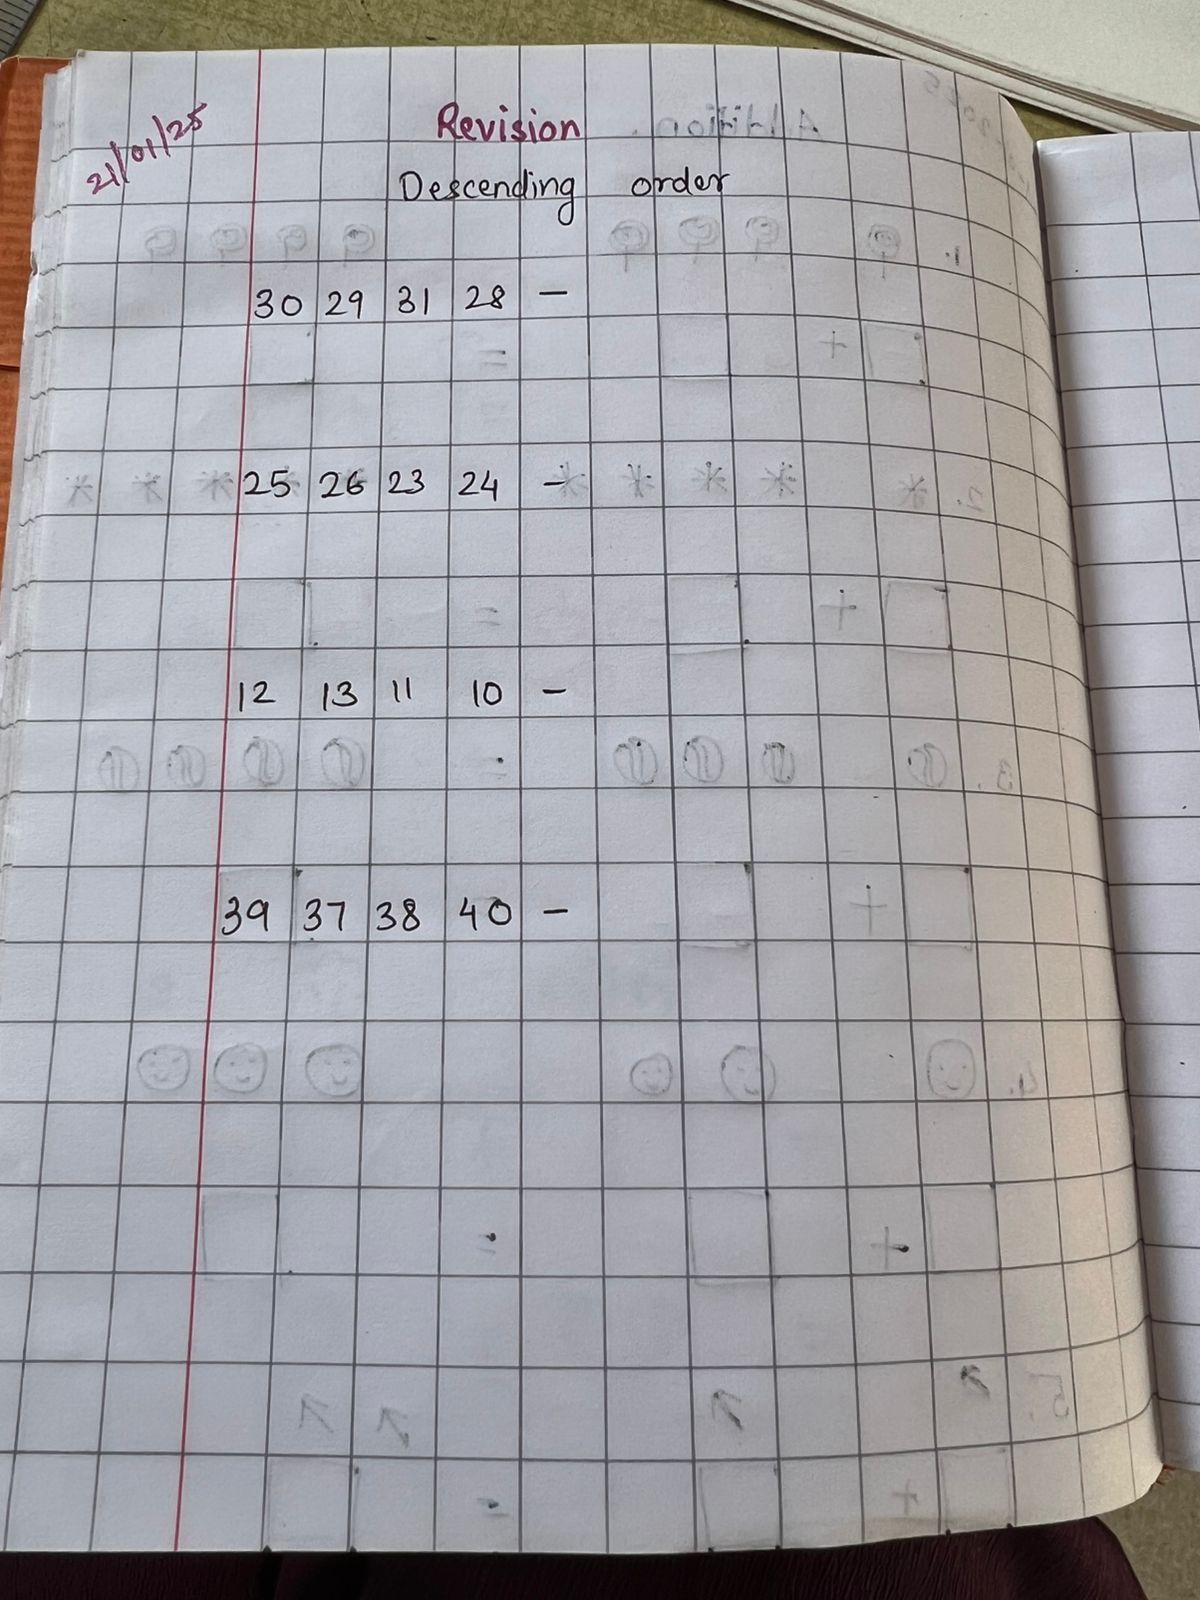 21/01/25
Revision
Descending order
30 29 31 28 -
25 26 23 24 -
12 13 11 10 -
39 37 38 40 -